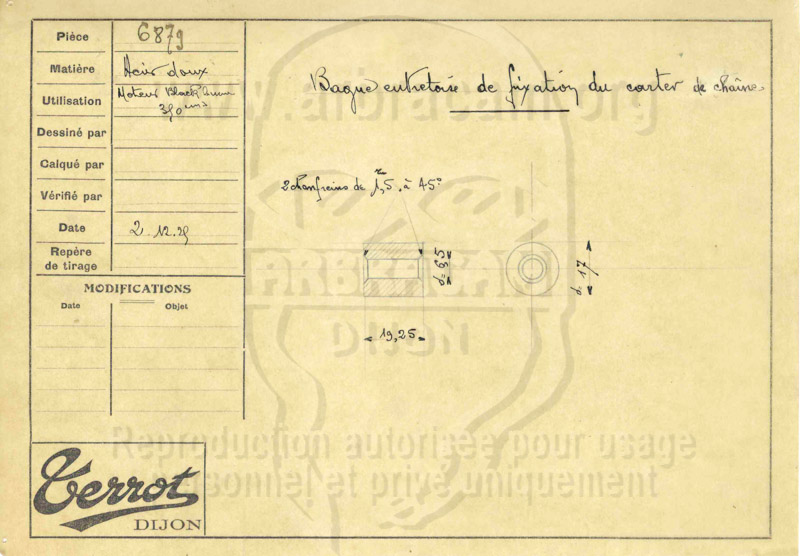 Pièce 6879
Matière Acier doux
Utilisation Moteur Blackburne
350 cm3
Dessiné par
Calqué par
Vérifié par
Date 2.12.29
Repère
de tirage
MODIFICATIONS
Date Objet
Terrot
DIJON
Bague entretoise de fixation du carter de chaîne
2 chanfreins de 1,5 à 45°
19,25
d= 6,5
d= 17
www.arbracam.org
ARBRACAM
DIJON
Reproduction autorisée pour usage
personnel et privé uniquement